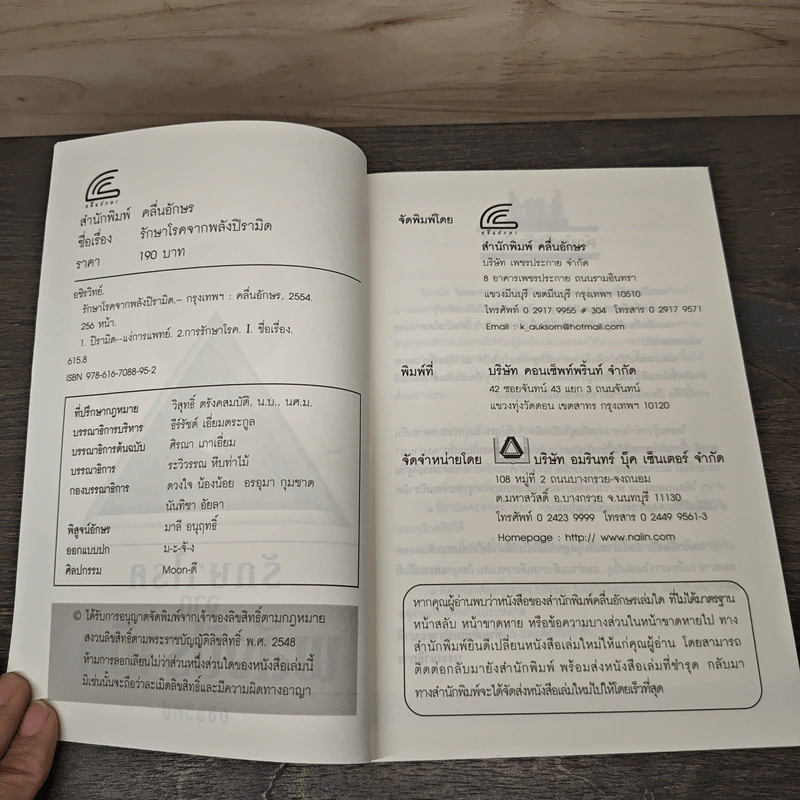 คลื่นอักษร
สำนักพิมพ์ คลื่นอักษร
ชื่อเรื่อง รักษาโรคจากพลังปิรามิด
ราคา 190 บาท
อชิรวิทย์.
รักษาโรคจากพลังปิรามิด.– กรุงเทพฯ : คลื่นอักษร, 2554.
256 หน้า.
1. ปิรามิด--แง่การแพทย์. 2.การรักษาโรค. I. ชื่อเรื่อง.
615.8
ISBN 978-616-7088-95-2
ที่ปรึกษากฎหมาย วิสุทธิ์ ตรังคสมบัติ, น.บ., นศ.ม.
บรรณาธิการบริหาร ธีร์รัชต์ เอี่ยมตระกูล
บรรณาธิการต้นฉบับ ศิรณา เภาเอี่ยม
บรรณาธิการ ระวิวรรณ หีบท่าไม้
กองบรรณาธิการ ดวงใจ น้องน้อย อรอุมา กุมชาด
นันทิชา อัยลา
พิสูจน์อักษร มาลี อนุฤทธิ์
ออกแบบปก ม-ะ-จั-ง
ศิลปกรรม Moon-ดี
© ได้รับการอนุญาตจัดพิมพ์จากเจ้าของลิขสิทธิ์ตามกฎหมาย
สงวนลิขสิทธิ์ตามพระราชบัญญัติลิขสิทธิ์ พ.ศ. 2548
ห้ามการลอกเลียนไม่ว่าส่วนหนึ่งส่วนใดของหนังสือเล่มนี้
มิเช่นนั้นจะถือว่าละเมิดลิขสิทธิ์และมีความผิดทางอาญา
จัดพิมพ์โดย
คลื่นอักษร
สำนักพิมพ์ คลื่นอักษร
บริษัท เพชรประกาย จำกัด
8 อาคารเพชรประกาย ถนนรามอินทรา
แขวงมีนบุรี เขตมีนบุรี กรุงเทพฯ 10510
โทรศัพท์ 0 2917 9955 # 304 โทรสาร 0 2917 9571
Email : k_auksorn@hotmail.com
พิมพ์ที่ บริษัท คอนเซ็พท์พริ้นท์ จำกัด
42 ซอยจันทน์ 43 แยก 3 ถนนจันทน์
แขวงทุ่งวัดดอน เขตสาทร กรุงเทพฯ 10120
จัดจำหน่ายโดย บริษัท อมรินทร์ บุ๊ค เซ็นเตอร์ จำกัด
108 หมู่ที่ 2 ถนนบางกรวย-จงถนอม
ต.มหาสวัสดิ์ อ.บางกรวย จ.นนทบุรี 11130
โทรศัพท์ 0 2423 9999 โทรสาร 0 2449 9561-3
Homepage : http:// www.naiin.com
หากคุณผู้อ่านพบว่าหนังสือของสำนักพิมพ์คลื่นอักษรเล่มใด ที่ไม่ได้มาตรฐาน
หน้าสลับ หน้าขาดหาย หรือข้อความบางส่วนในหน้าขาดหายไป ทาง
สำนักพิมพ์ยินดีเปลี่ยนหนังสือเล่มใหม่ให้แก่คุณผู้อ่าน โดยสามารถ
ติดต่อกลับมายังสำนักพิมพ์ พร้อมส่งหนังสือเล่มที่ชำรุด กลับมา
ทางสำนักพิมพ์จะได้จัดส่งหนังสือเล่มใหม่ไปให้โดยเร็วที่สุด